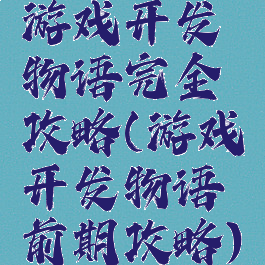 游戏开发
物语完全
攻略(游戏
开发物语
前期攻略)